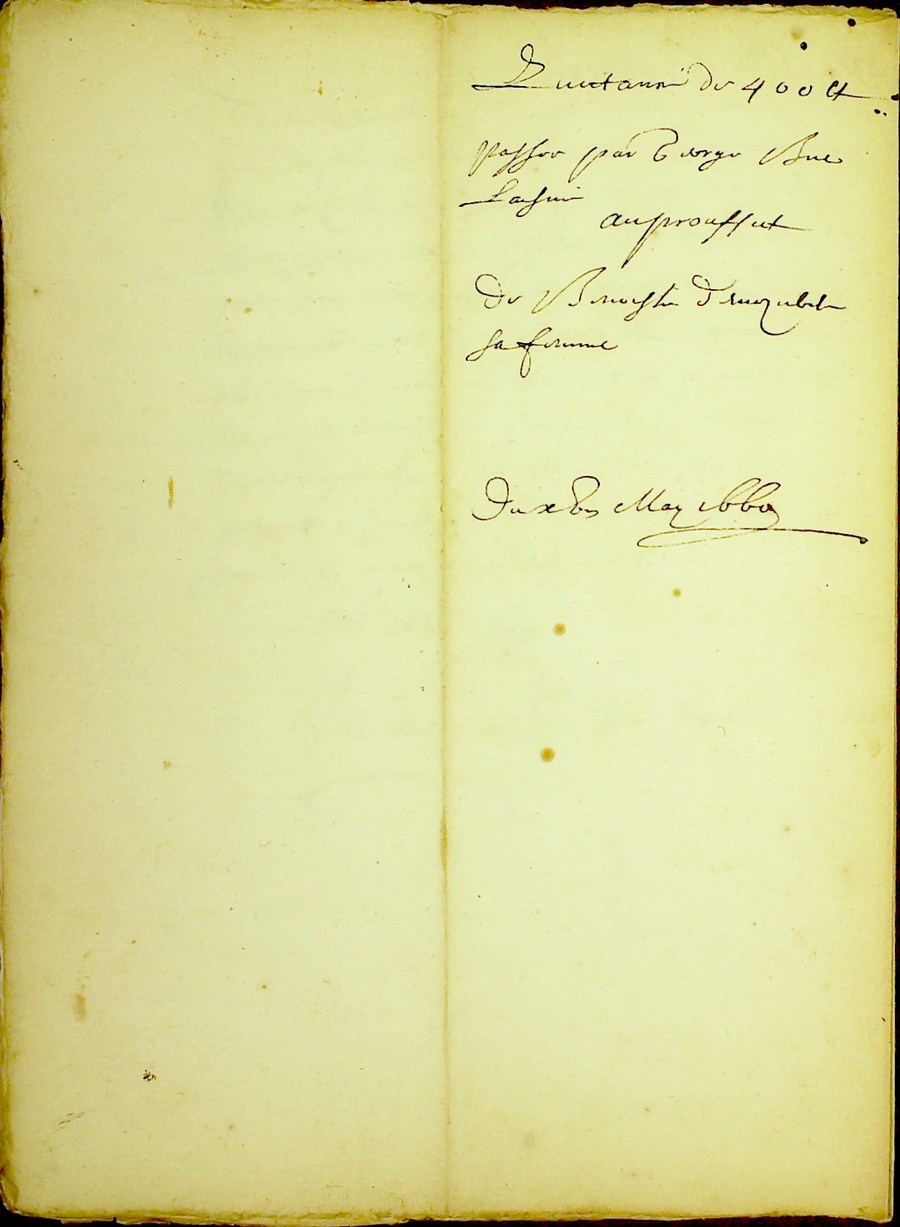 Quittance de 400  lt
passee par George Bue
Lasne
au prouffict
de Benoiste
sa femme
Du May 1660